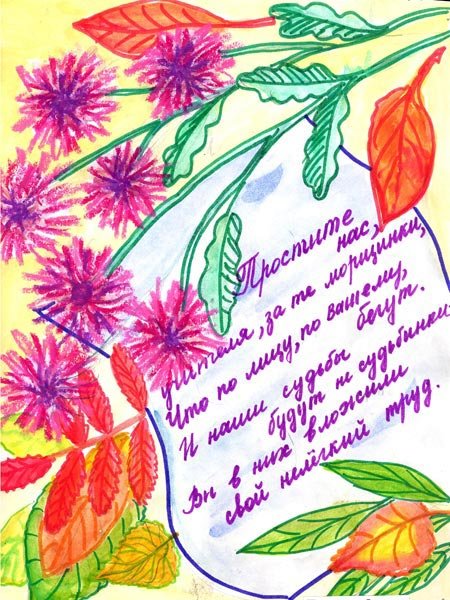 Простите
нас,
учителя, за те морщинки,
Что по лицу, по вашему,
бегут.
И наши судьбы
будут не судьбинки-
Вы в них вложили
свой нелёгкий труд.